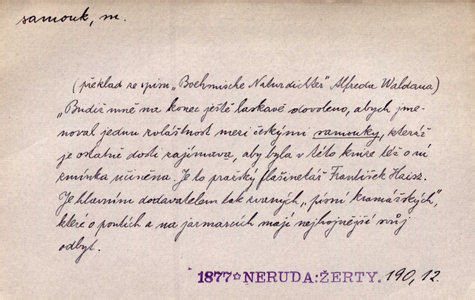 samouk, m.
(překlad ze spisu „Boehmische Naturdichter" Alfreda Waldaua)
„Budiž mně na konec ještě laskavě dovoleno, abych jme-
noval jednu zvláštnost mezi českými samouky, kteráž
je ostatně dosti zajímava, aby byla v této knize též o ní
zmínka učiněna. Je to pražský flašinetář František Haisz.
Je hlavním dodavatelem tak zvaných „písní kramářských",
které o poutích a na jarmarcích mají nejhojnější svůj
odbyt.
1877☆NERUDA:ŽERTY. 190, 12.